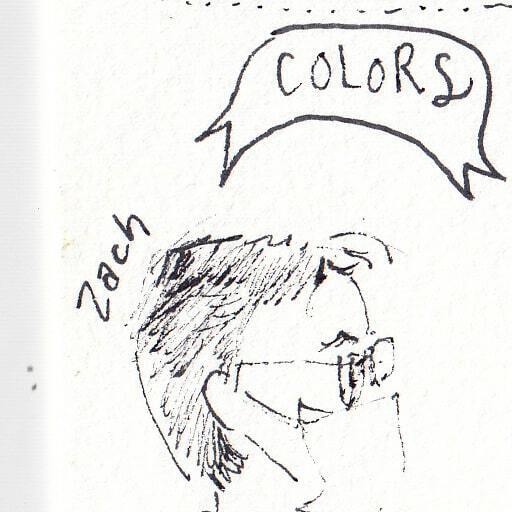 COLORS
Zach